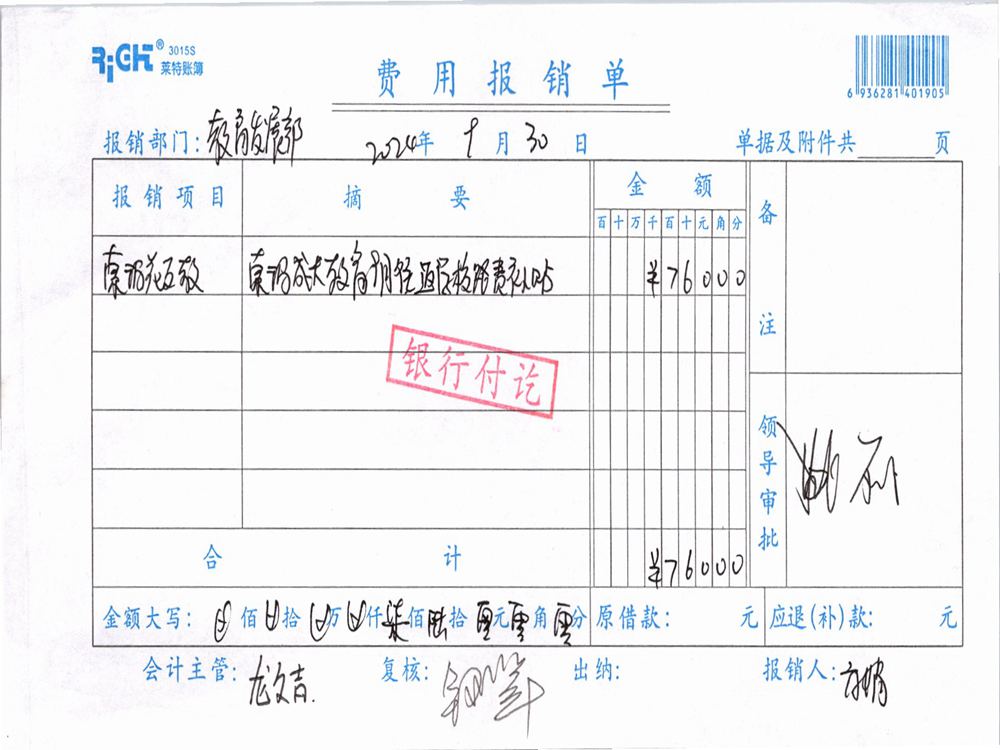 RiGHT® 3015S
莱特账簿
费用报销单
6 936281 401905
报销部门：教育发展部 2024年 9月30日 单据及附件共 页
报销项目 摘要 金额 备注
百十万千百十元角分
东湖成大教育 月 返学校路费补贴 ¥76000
银行付讫
领导审批
合计 ¥76000
金额大写： 佰 拾 万 仟柒佰陆拾零元零角零分 原借款： 元 应退(补)款： 元
会计主管：龙文吉 复核： 出纳： 报销人：